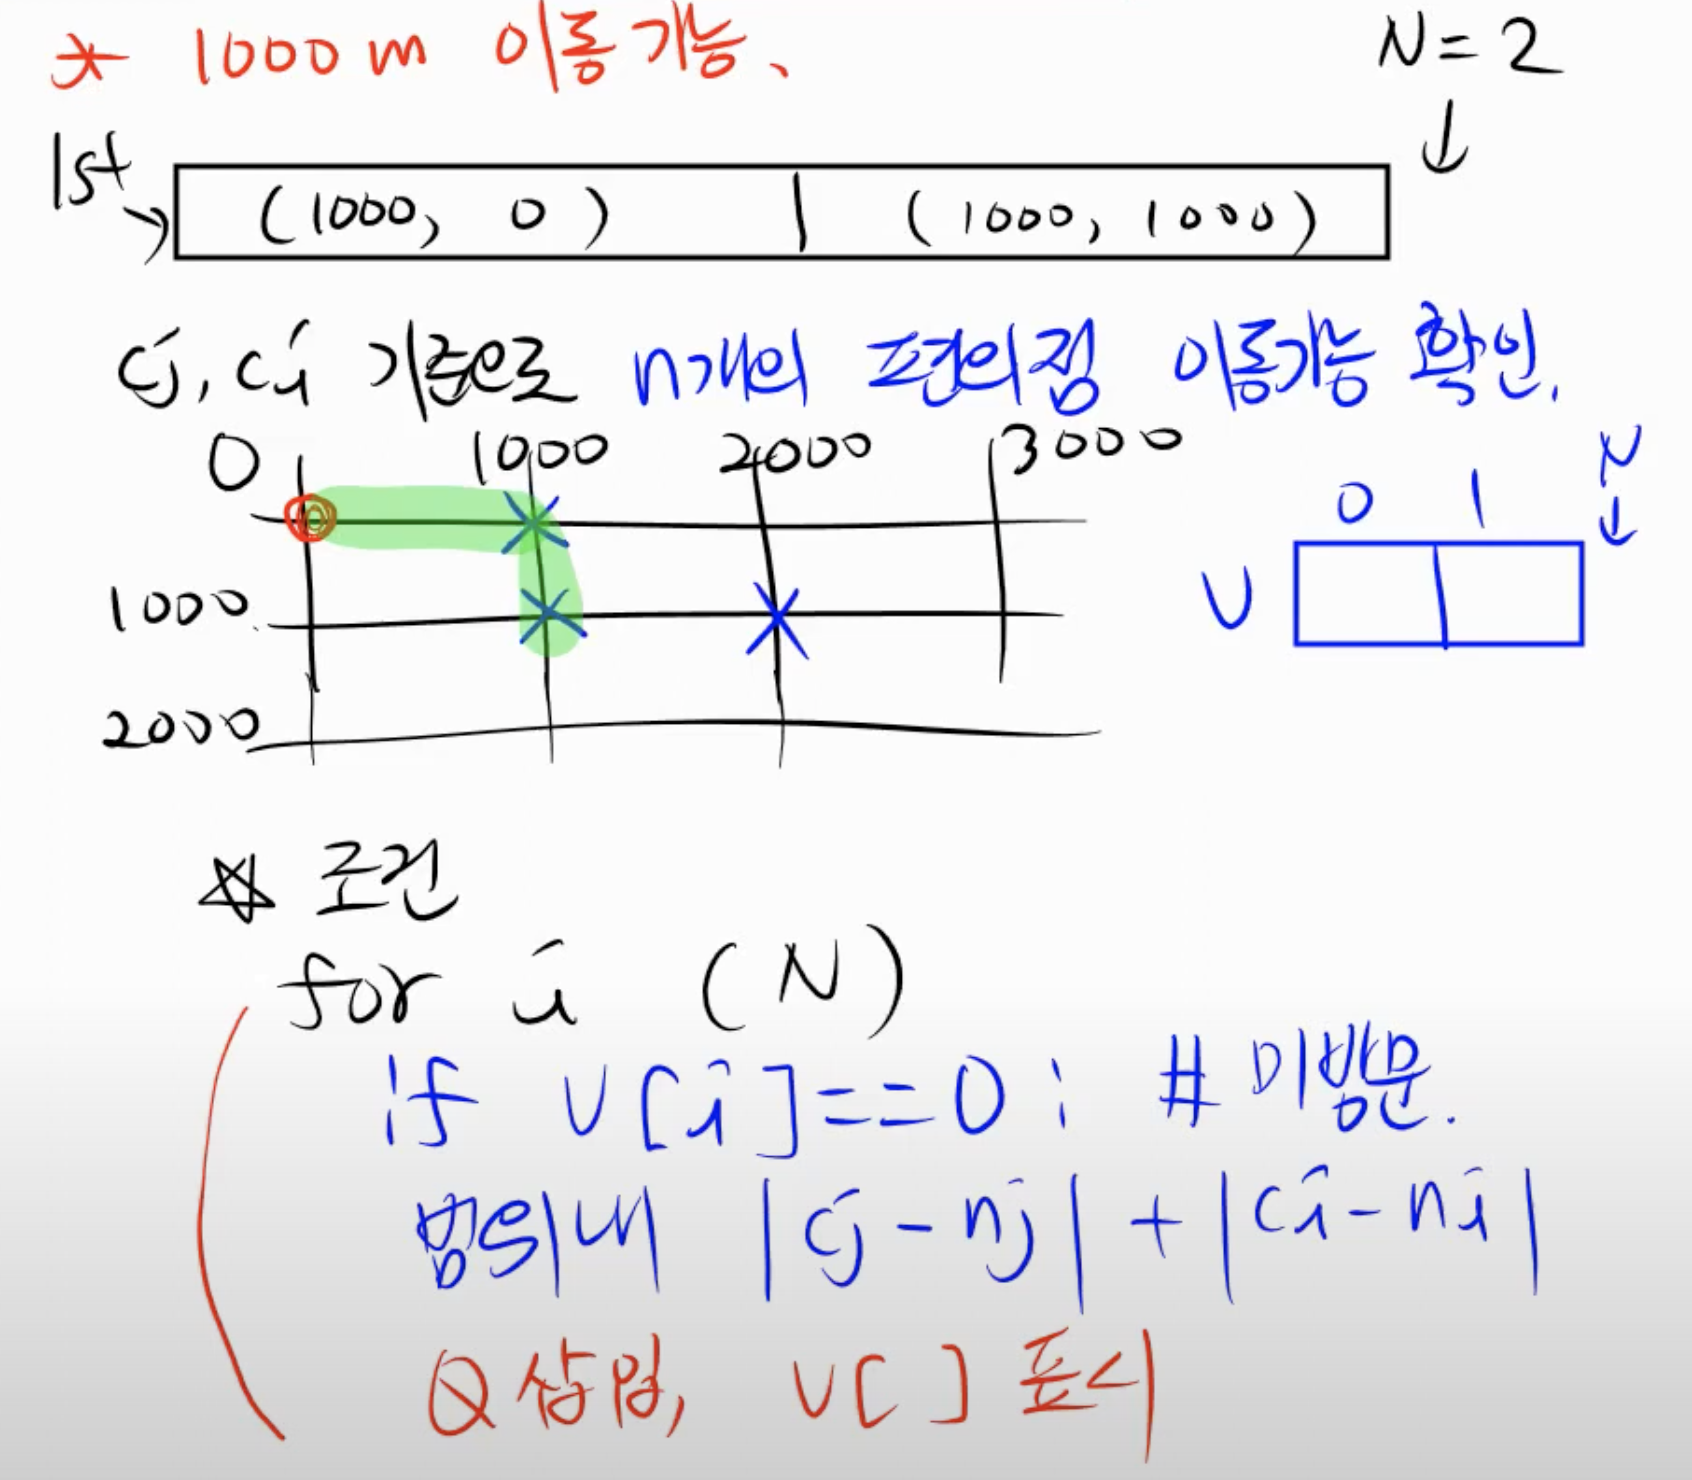 * 1000m 이동가능.
N=2
lst
(1000, 0) | (1000, 1000)
cj, ci 기준으로 n개의 편의점 이동가능 확인.
0 1000 2000 3000
1000
2000
N
0 1
V
☆ 조건
for i (N)
if V[i]==0: # 미방문.
범위내 |cj-nj| + |ci-ni|
Q삽입, V[ ] 표시